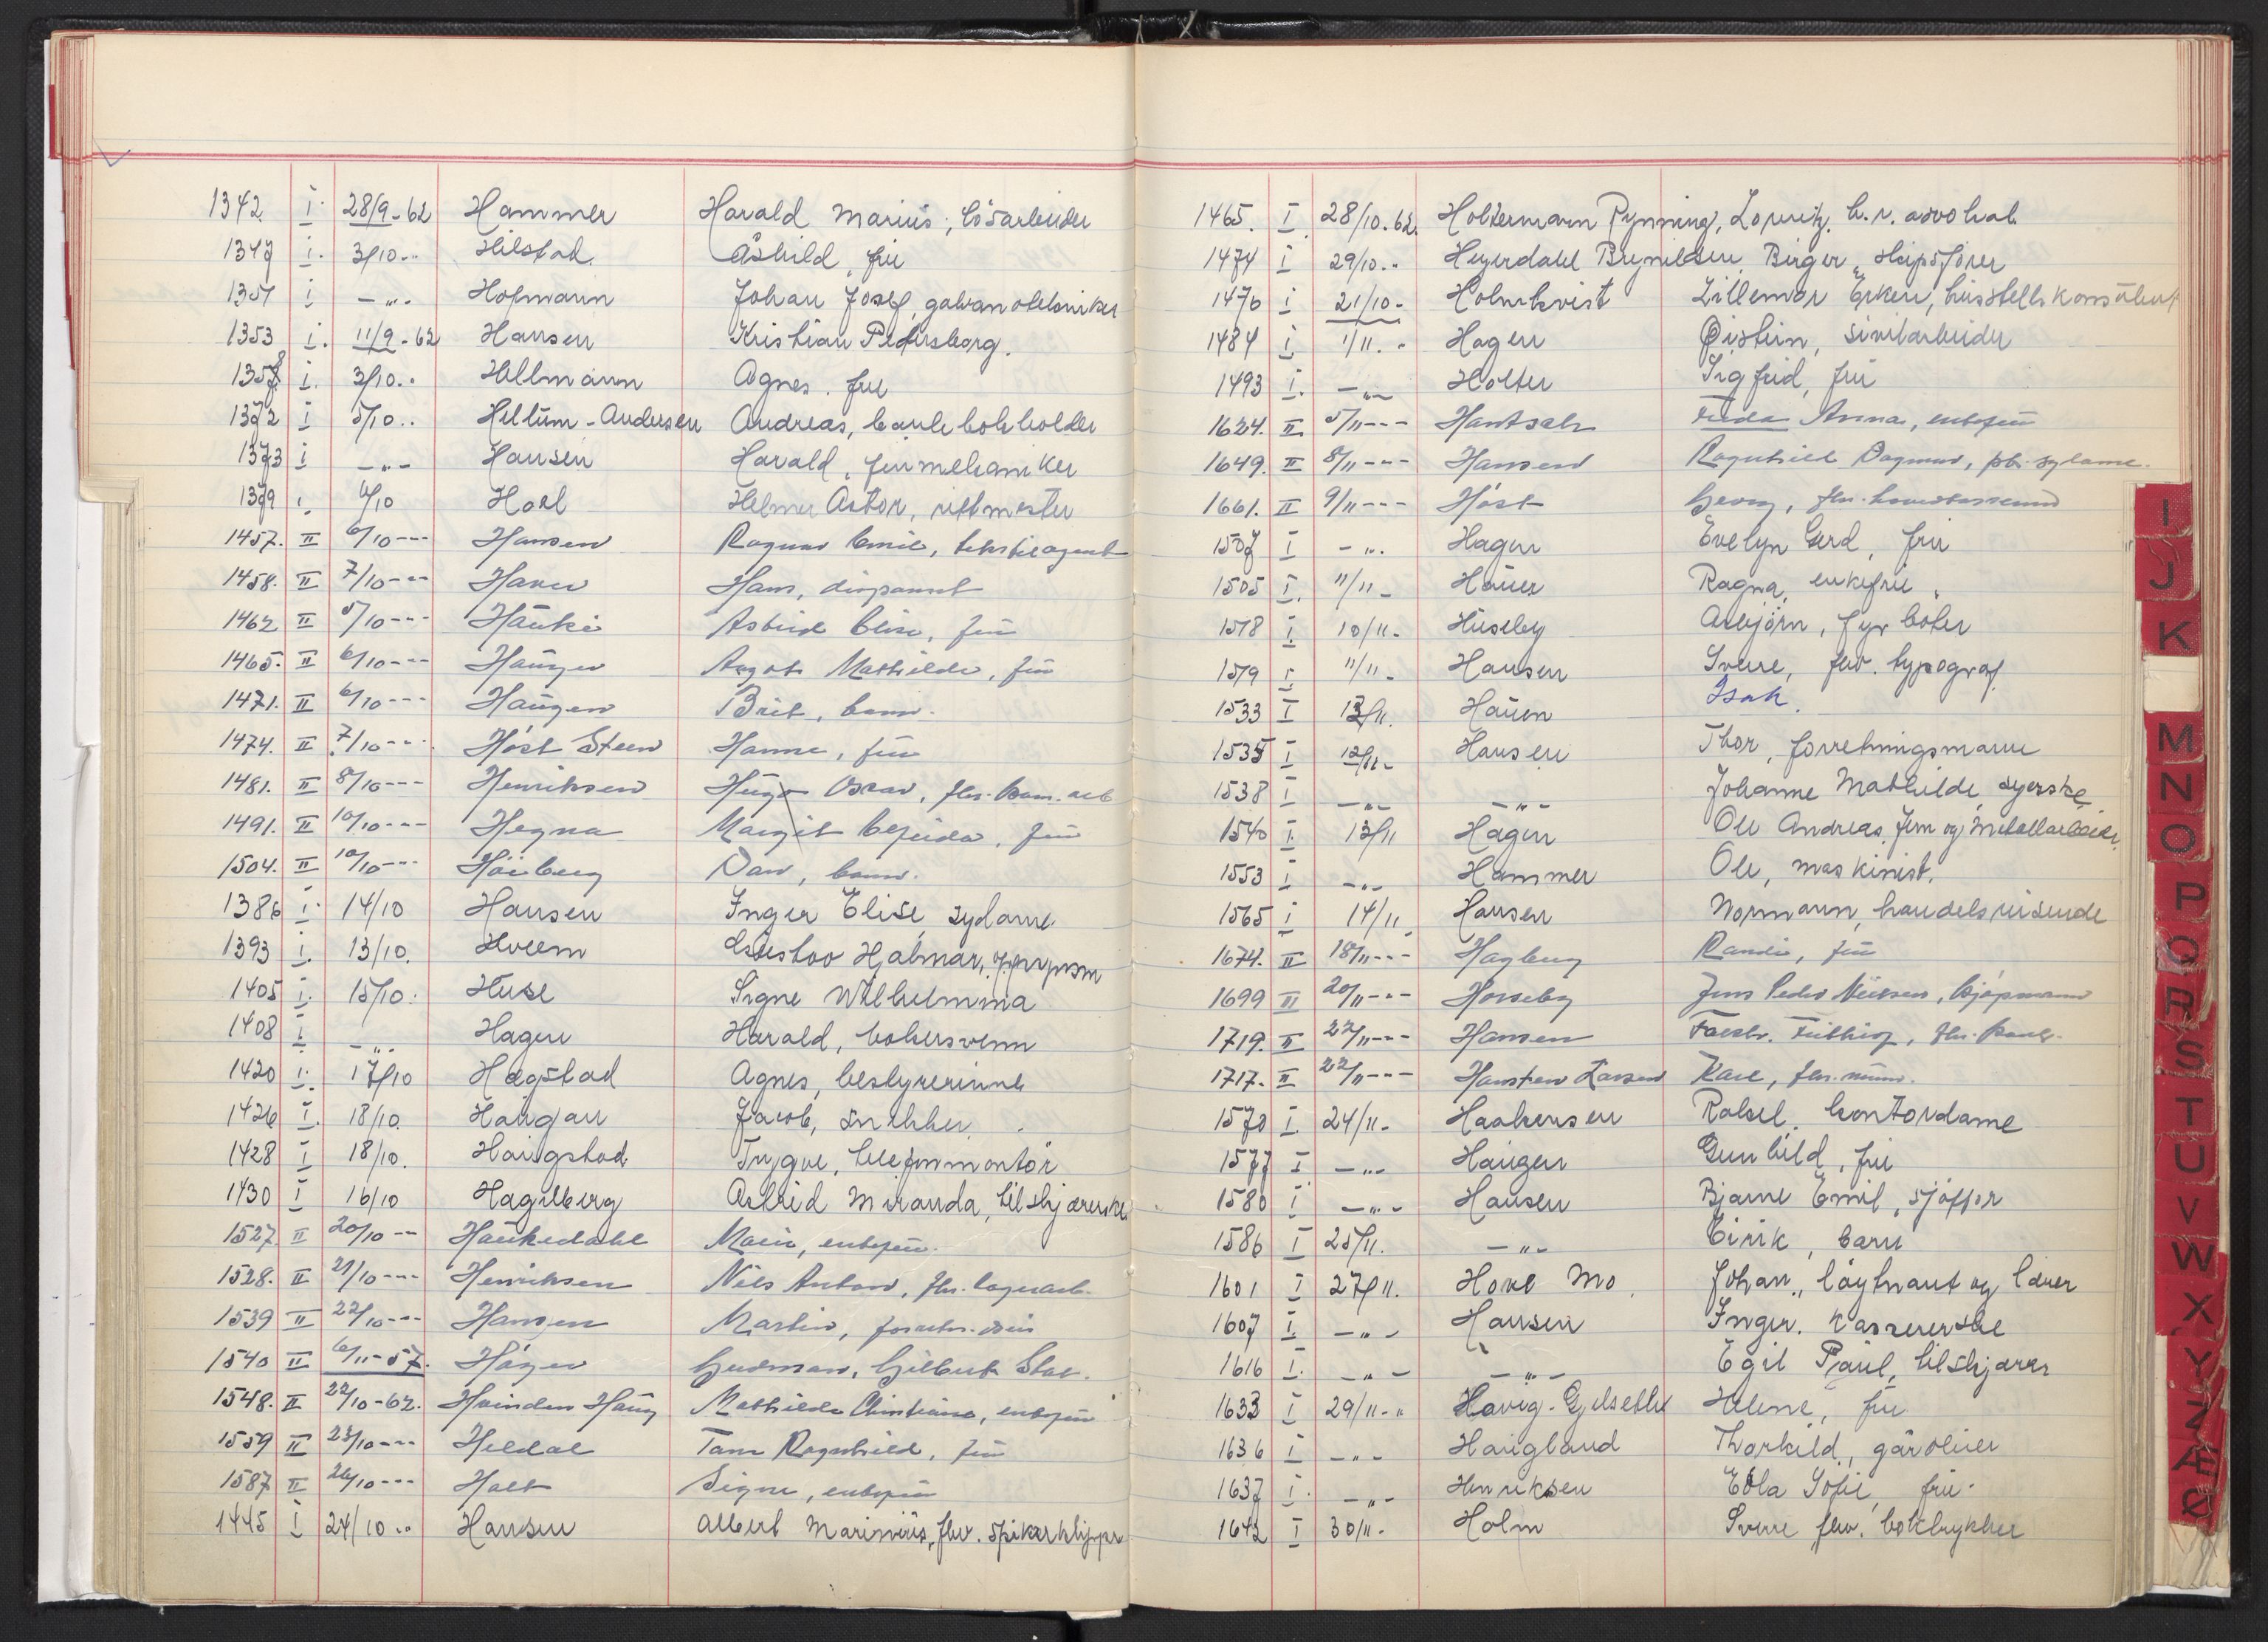 1342 I. 28/9-62 Hammer Harald Marius, lösarbeider
1347 I. 3/10-" Hilstad Åshild, frü
1351 I -"- Hofmann Johan Josef, galvanotekniker
1353 I. 11/9-62 Hansen Kristian Petersborg.
1358 I. 3/10-" Hellmann Agnes. frü
1372 I 5/10-" Hellum-Andersen Andreas, bankbokholder
1373 I -"- Hansen Harald, finmekaniker
1379 I. 6/10 Hoel Helmer Astor, rittmester
1457. II 6/10 --- Hansen Ragnar Emil, tekstilagent
1458. II 7/10 --- Haver Hans, disponent
1462 II 5/10 --- Hauke Astrid Elise, frü
1465. II 6/10 --- Haugen Aagot Mathilde, frü
1471. II 6/10 --- Haugen Brit, barn.
1474. II 7/10 --- Höst Steen Hanna, frü
1481. II 8/10 --- Henriksen Hugo Oscar, fhv. kom. arb
1491. II 10/10 --- Hegna Margit, frü
1504. II 10/10 --- Höiberg Dan, barn.
1386 I. 14/10 Hansen Inger Elise, sydame.
1393 I. 13/10. Hveem Hjalmar,
1405 I. 15/10. Huse Signe Wilhelmina
1408 I. -"- Hagen Harald, bokersvenn
1420 I. 17/10 Hegstad Agnes, bestyrerinne
1426 I. 18/10. Haugan Jacob, snekker.
1428 I 18/10. Haugstad Trygve, telefonmontör
1430 I 16/10 Hagelberg Astrid Miranda, tilskjærerske
1527. II 20/10 -- Haukedahl Marie, enkefrü.
1528. II 21/10 --- Henriksen Nils Anton, fhv. lagerarb.
1539 II 22/10 --- Hansen Martin, forretn. driv
1540 II 6/11-57. Höger Gudmar, Gilbert
1548. II 22/10-62. Hvinden Haug Mathilde Christiane, enkefrü
1559 II 23/10 --- Heldal Ragnhild, frü
1587 II 26/10 --- Holt Signe, enkefrü
1445 I 24/10-" Hansen Albert Marinius, fhv. spikerklipper
1465. I. 28/10.62. Holtermann Rynning, Lorentz, h.r. advokat.
1474 I 29/10-" Heyerdahl Brynildsen, Birger, skipsfører
1476 I 21/10- Holmkvist Lillemor Eckern, husstellkonsulent
1484 I 1/11-" Hagen Øistein, sivilarbeider
1493 I. -"- Holter Sigfrid, frü
1624. II 5/11 --- Hantsch Frida Anna, enkefrü
1649. II 8/11 --- Hansen Ragnhild Dagmar, sydame.
1661. II 9/11 --- Höst Georg, fhv.
1507 I -"- Hagen Evelyn Gerd, frü
1505 I. 11/11- Hauer Ragna, enkefrü
1518 I. 10/11- Huseby Asbjörn, fyrböter
1519 I. 11/11- Hansen Sverre, fhv. typograf
1533 I 13/11. Hauen Isak.
1535 I 12/11- Hansen Thor, forretningsmann
1538 I -"- -"- Johanne Mathilde, syerske
1540 I. 13/11 Hagen Ole Andreas, Jern og metallarbeider
1553 I -"- Hammer Ole, maskinist.
1565 I 14/11. Hansen Normann, handelsreisende
1674. II 18/11 --- Hagberg Randi, frü
1699 III 20/11 --- Horseby Jens Peder Nielsen, kjöpmann
1719. II 22/11 --- Hansen Fridthjof, fhv.
1717. II 22/11 --- Hansten Larsen Kåre, fhv. mürer.
1570 I. 24/11- Haakensen Rakel, kontordame
1577 I -"- Haugen Gunhild, frü
1580 I -"- Hansen Bjarne Emil, sjåfför
1586 I 25/11. -"- Eirik, barn
1601 I 27/11. Hove Mo Johan, löytnant og lærer
1607 I. -"- Hansen Inger. kassererske
1616 I. -"- -"- Egil Paul, tilskjærer
1633 I 29/11-" Havig-Gjelseth Helene, frü
1636 I -"- Haugland Thorkild, gårdeier
1637 I. -"- Henriksen Ella Sofie, frü.
1642 I 30/11- Holm Sverre fhv. boktrykker
I
J
K
M
N
O
P
Q
R
S
T
U
V
W
X
Y
Z
Æ
Ø